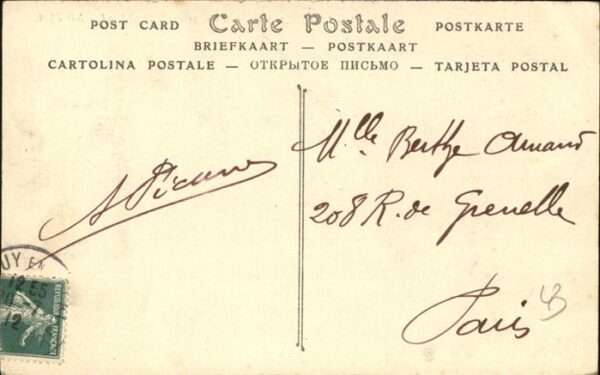 POST CARD Carte Postale POSTKARTE
BRIEFKAART — POSTKAART
CARTOLINA POSTALE — ОТКРЫТОЕ ПИСЬМО — TARJETA POSTAL
Mlle Berthe Amand
208 R. de Grenelle
Paris